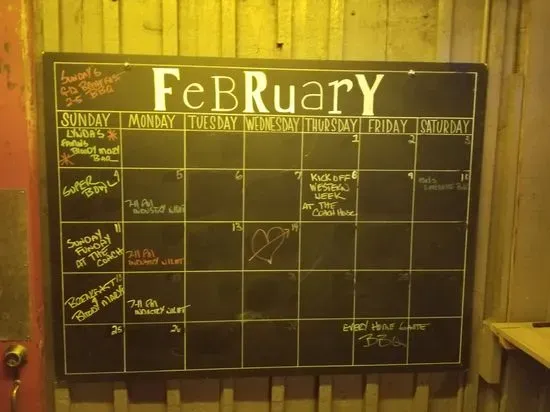 SUNDAY'S
BREAKFAST
2-5 BBQ
FeBRuarY
SUNDAY MONDAY TUESDAY WEDNESDAY THURSDAY FRIDAY SATURDAY
LYNDA'S
FAMOUS
BLOODY MARY
BAR
1 2 3
4 5 6 7 8 9 10
SUPER
BOWL
7-11 PM
INDUSTRY NIGHT
KICK OFF
WESTERN
WEEK
AT THE
COACH HOUSE
11 13 14
SUNDAY
FUNDAY
AT THE
COACH
7-11 PM
INDUSTRY NIGHT
BREAKFAST
&
BLOODY MARYS
7-11 PM
INDUSTRY NIGHT
25 26
EVERY HOME GAME
BBQ